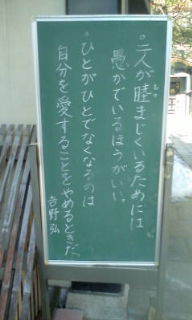 。二人が睦まじくいるためには
愚かでいるほうがいい。
。ひとがひとでなくなるのは
自分を愛することをやめるときだ。
吉野弘